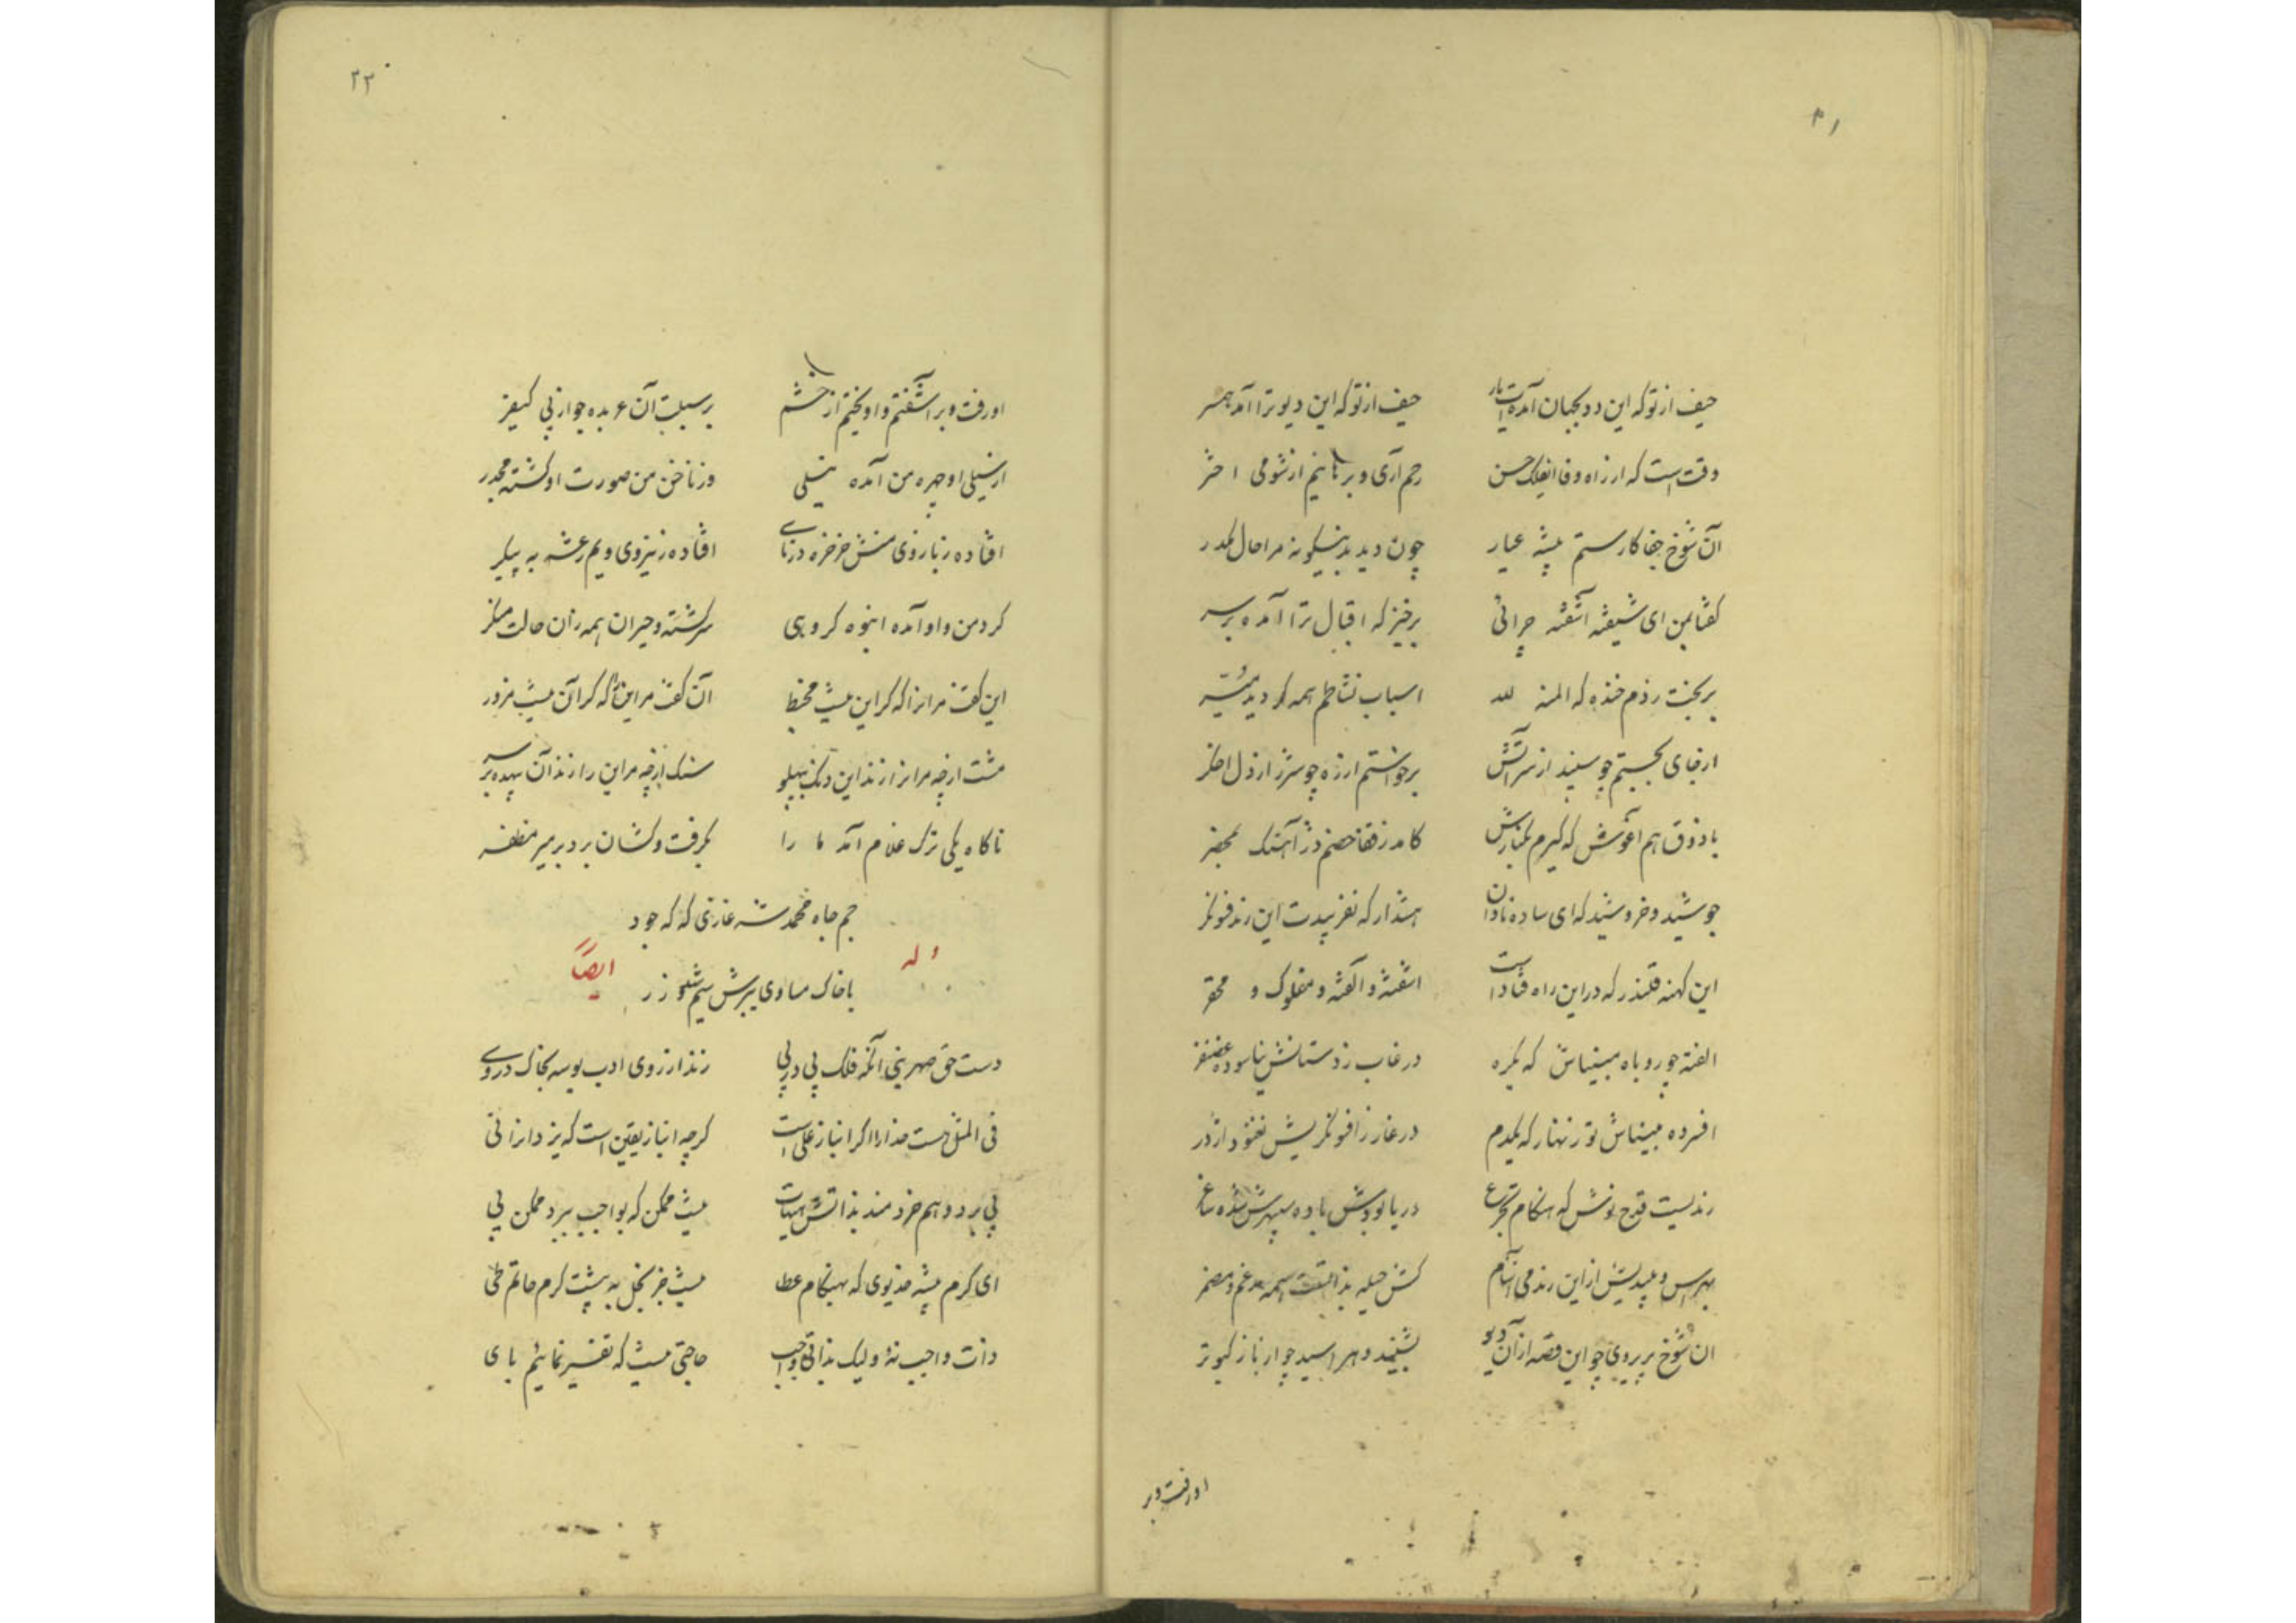 ۳۱
حیف از تو که این دد بجهان آمده‌ات یار حیف از تو که این دیو ترا آمد همسر
وقت است که از راه وفا ای فلک حسن رحم آری و برهانیم از شومی اختر
آن شوخ جفا کار ستم پیشه عیار چون دید بدینگونه مرا حال مکدر
گفتا بمن ای شیفته آشفته چرائی برخیز که اقبال ترا آمده بر سر
بر بخت زدم خنده که المنة لله اسباب نشاطم همه گردید میسر
از جای بجستم چو سپند از سر آتش برخواستم از ره چو شرر از دل اخگر
با ذوق هم آغوش که گیرم بکنارش کامد ز قفا خصم در آهنگ
جوشید و خروشید که ای ساده نادان هشدار که نفریبدت این رند فسونگر
این کهنه قلندر که در این راه فتاد است آشفته و آلفته و مفلوک و محقر
الفته چو روباه مبیناش که یکره در غاب ز دستانش نیاسوده غضنفر
افسرده مبیناش تو زنهار که یکدم در غار ز افسونگریش نغنود اژدر
رندیست قدح نوش که هنگام تجرع دریا بودش باده سپهرش شده ساغر
بهراس و بیندیش از این رند می آشام کش حیله بذات است همه مدغم و مضمر
ان شوخ پریروی چو این قصه از آن دیو بشنید و هراسید چو از باز کبوتر
او رفت و بر
۳۲
او رفت و بر آشفتم و آویختم از خشم بر سبلت آن عربده جو از پی کیفر
از سیلی او چهره من آمده نیلی وز ناخن من صورت او گشته مجدر
افتاده ز بازوی منش خرخره در نای افتاده ز نیروی ویم رعشه به پیکر
گرد من و او آمده انبوه گروهی سرگشته و حیران همه زان حالت منکر
این گفت مر انرا که گر این نیست مخبط آن گفت مر این را که گر آن نیست مزور
مشت ارچه مر انرا زند این دنگ بپهلو سنگ ارچه مر این را زند آن بیهده بر سر
ناگاه یکی ترک غلام آمد ما را بگرفت و کشان برد بر میر مظفر
جم جاه محمد شه غازی که گه جود
با خاک مساوی ببرش سیم شد و زر
وله ایضاً
دست حق صهر نبی آنکه فلک پی در پی زند از روی ادب بوسه بخاک در وی
فی المثل هست خدا را اگر انباز علی است گرچه انباز یقین است که یزدانرا نی
پی برد وهم خردمند بذاتش هیهات نیست ممکن که بواجب ببرد ممکن پی
ای کرم پیشه خدیوی که بهنگام عطا نیست جز بخل به پیشت کرم حاتم طی
ذات واجب نهٔ و لیک بذاتی واجب حاجتی نیست که تفسیر نمائیم بای